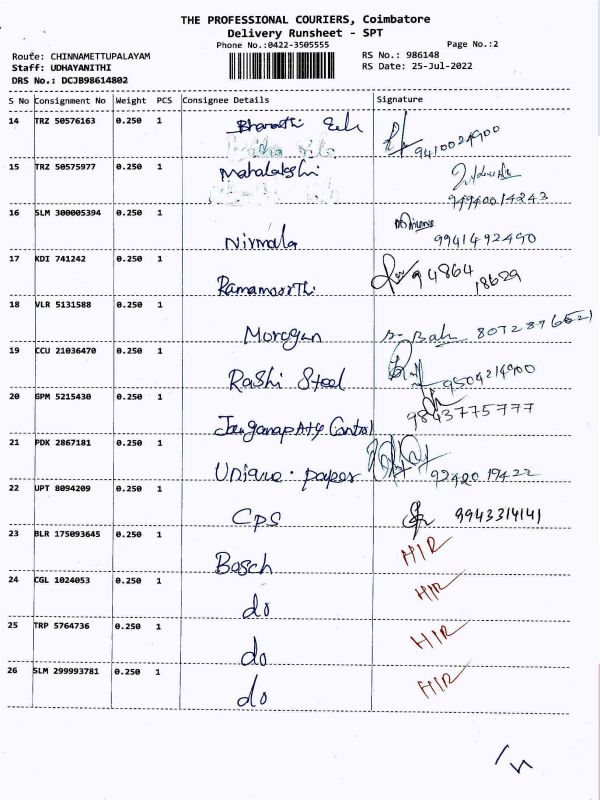 THE PROFESSIONAL COURIERS, Coimbatore
Delivery Runsheet - SPT
Phone No.:0422-3505555
Page No.:2
Route: CHINNAMETTUPALAYAM
RS No.: 986148
Staff: UDHAYANITHI
RS Date: 25-Jul-2022
DRS No.: DCJB98614802
S No Consignment No Weight PCS Consignee Details Signature
14 TRZ 50576163 0.250 1
Bharathi
9410024900
15 TRZ 50575977 0.250 1
Mahalakshi
94940014243
16 SLM 300005394 0.250 1
Nirmala 9941492490
17 KDI 741242 0.250 1
Ramamoorthi 94864 18629
18 VLR 5131588 0.250 1
Morogan
19 CCU 21036470 0.250 1
Rashi Steel 9504214900
20 GPM 5215430 0.250 1
9843775777
21 PDK 2867181 0.250 1
Unique. paper 92420 19422
22 UPT 8094209 0.250 1
CPS 9943314141
23 BLR 175093645 0.250 1
Bosch HIR
24 CGL 1024053 0.250 1
do HIR
25 TRP 5764736 0.250 1
do HIR
26 SLM 299993781 0.250 1
do HIR